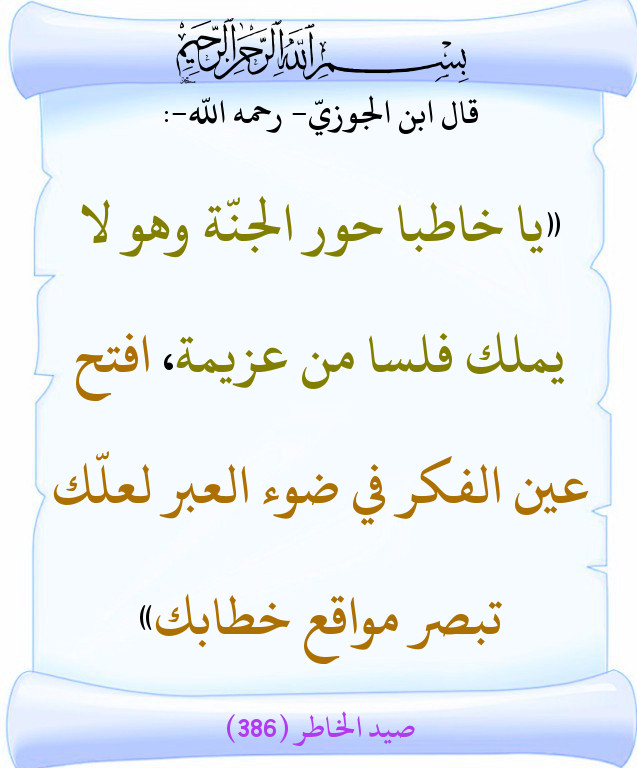 بسم الله الرحمن الرحيم
قال ابن الجوزيّ- رحمه الله-:
«يا خاطبا حور الجنّة وهو لا
يملك فلسا من عزيمة، افتح
عين الفكر في ضوء العبر لعلّك
تبصر مواقع خطابك»
صيد الخاطر (386)